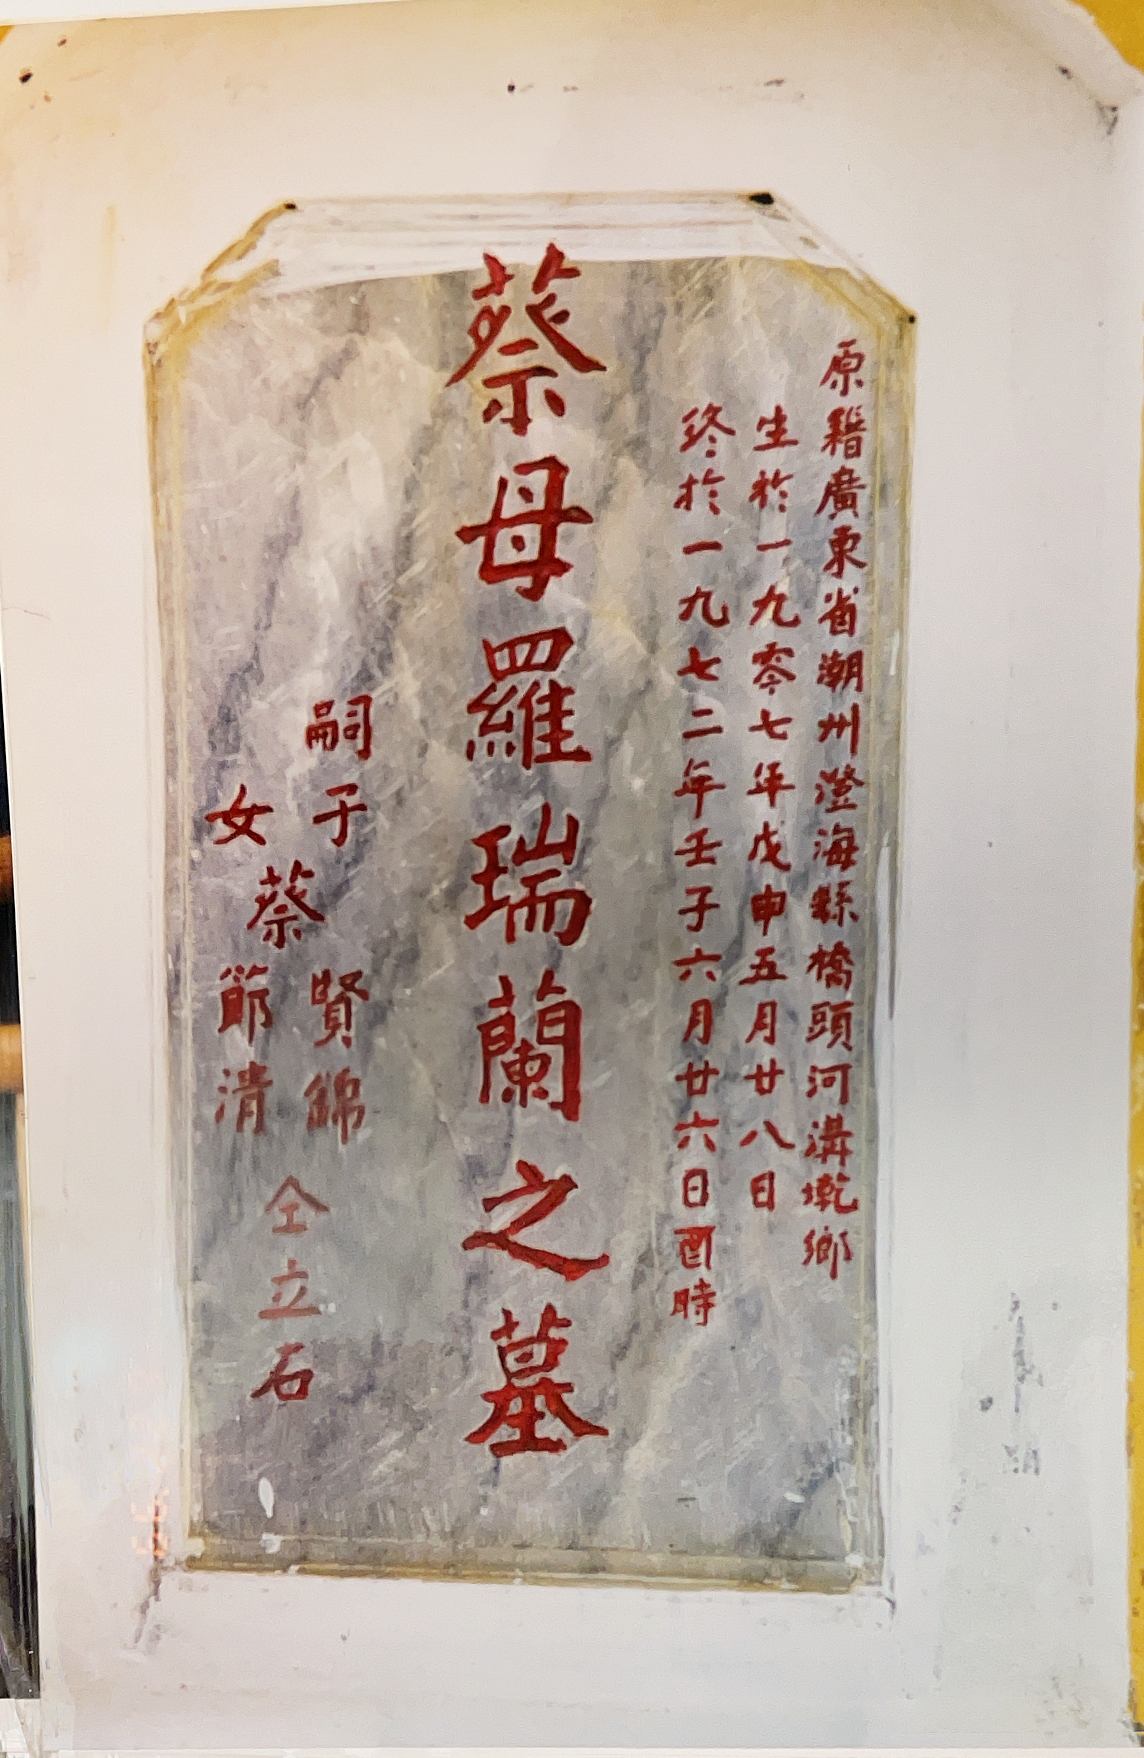 原籍廣東省潮州澄海縣橋頭河溝墘鄉
生於一九零七年戊申五月廿八日
終於一九七二年壬子六月廿六日酉時
蔡母羅瑞蘭之墓
嗣子
女
蔡
賢錦
節清
仝立石